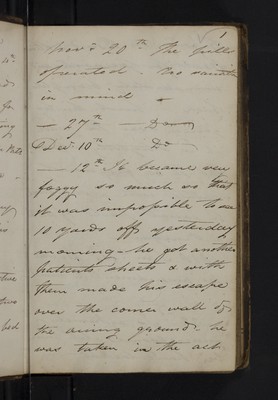 1
Novr 20th The pills
operated. No
in mind
— 27th — Do
Decr 10th Do
— 12th It became very
foggy so much so that
it was impossible to see
10 yards off yesterday
morning – he got another
patients sheets & with
them made his escape
over the corner wall of
the airing ground. he
was taken in the act